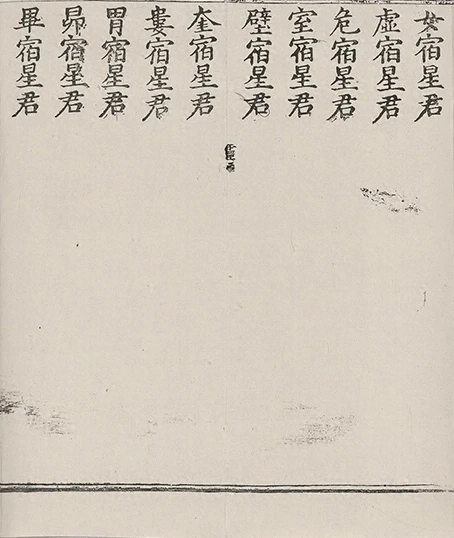 女宿星君
虛宿星君
危宿星君
室宿星君
壁宿星君
奎宿星君
婁宿星君
胃宿星君
昴宿星君
畢宿星君